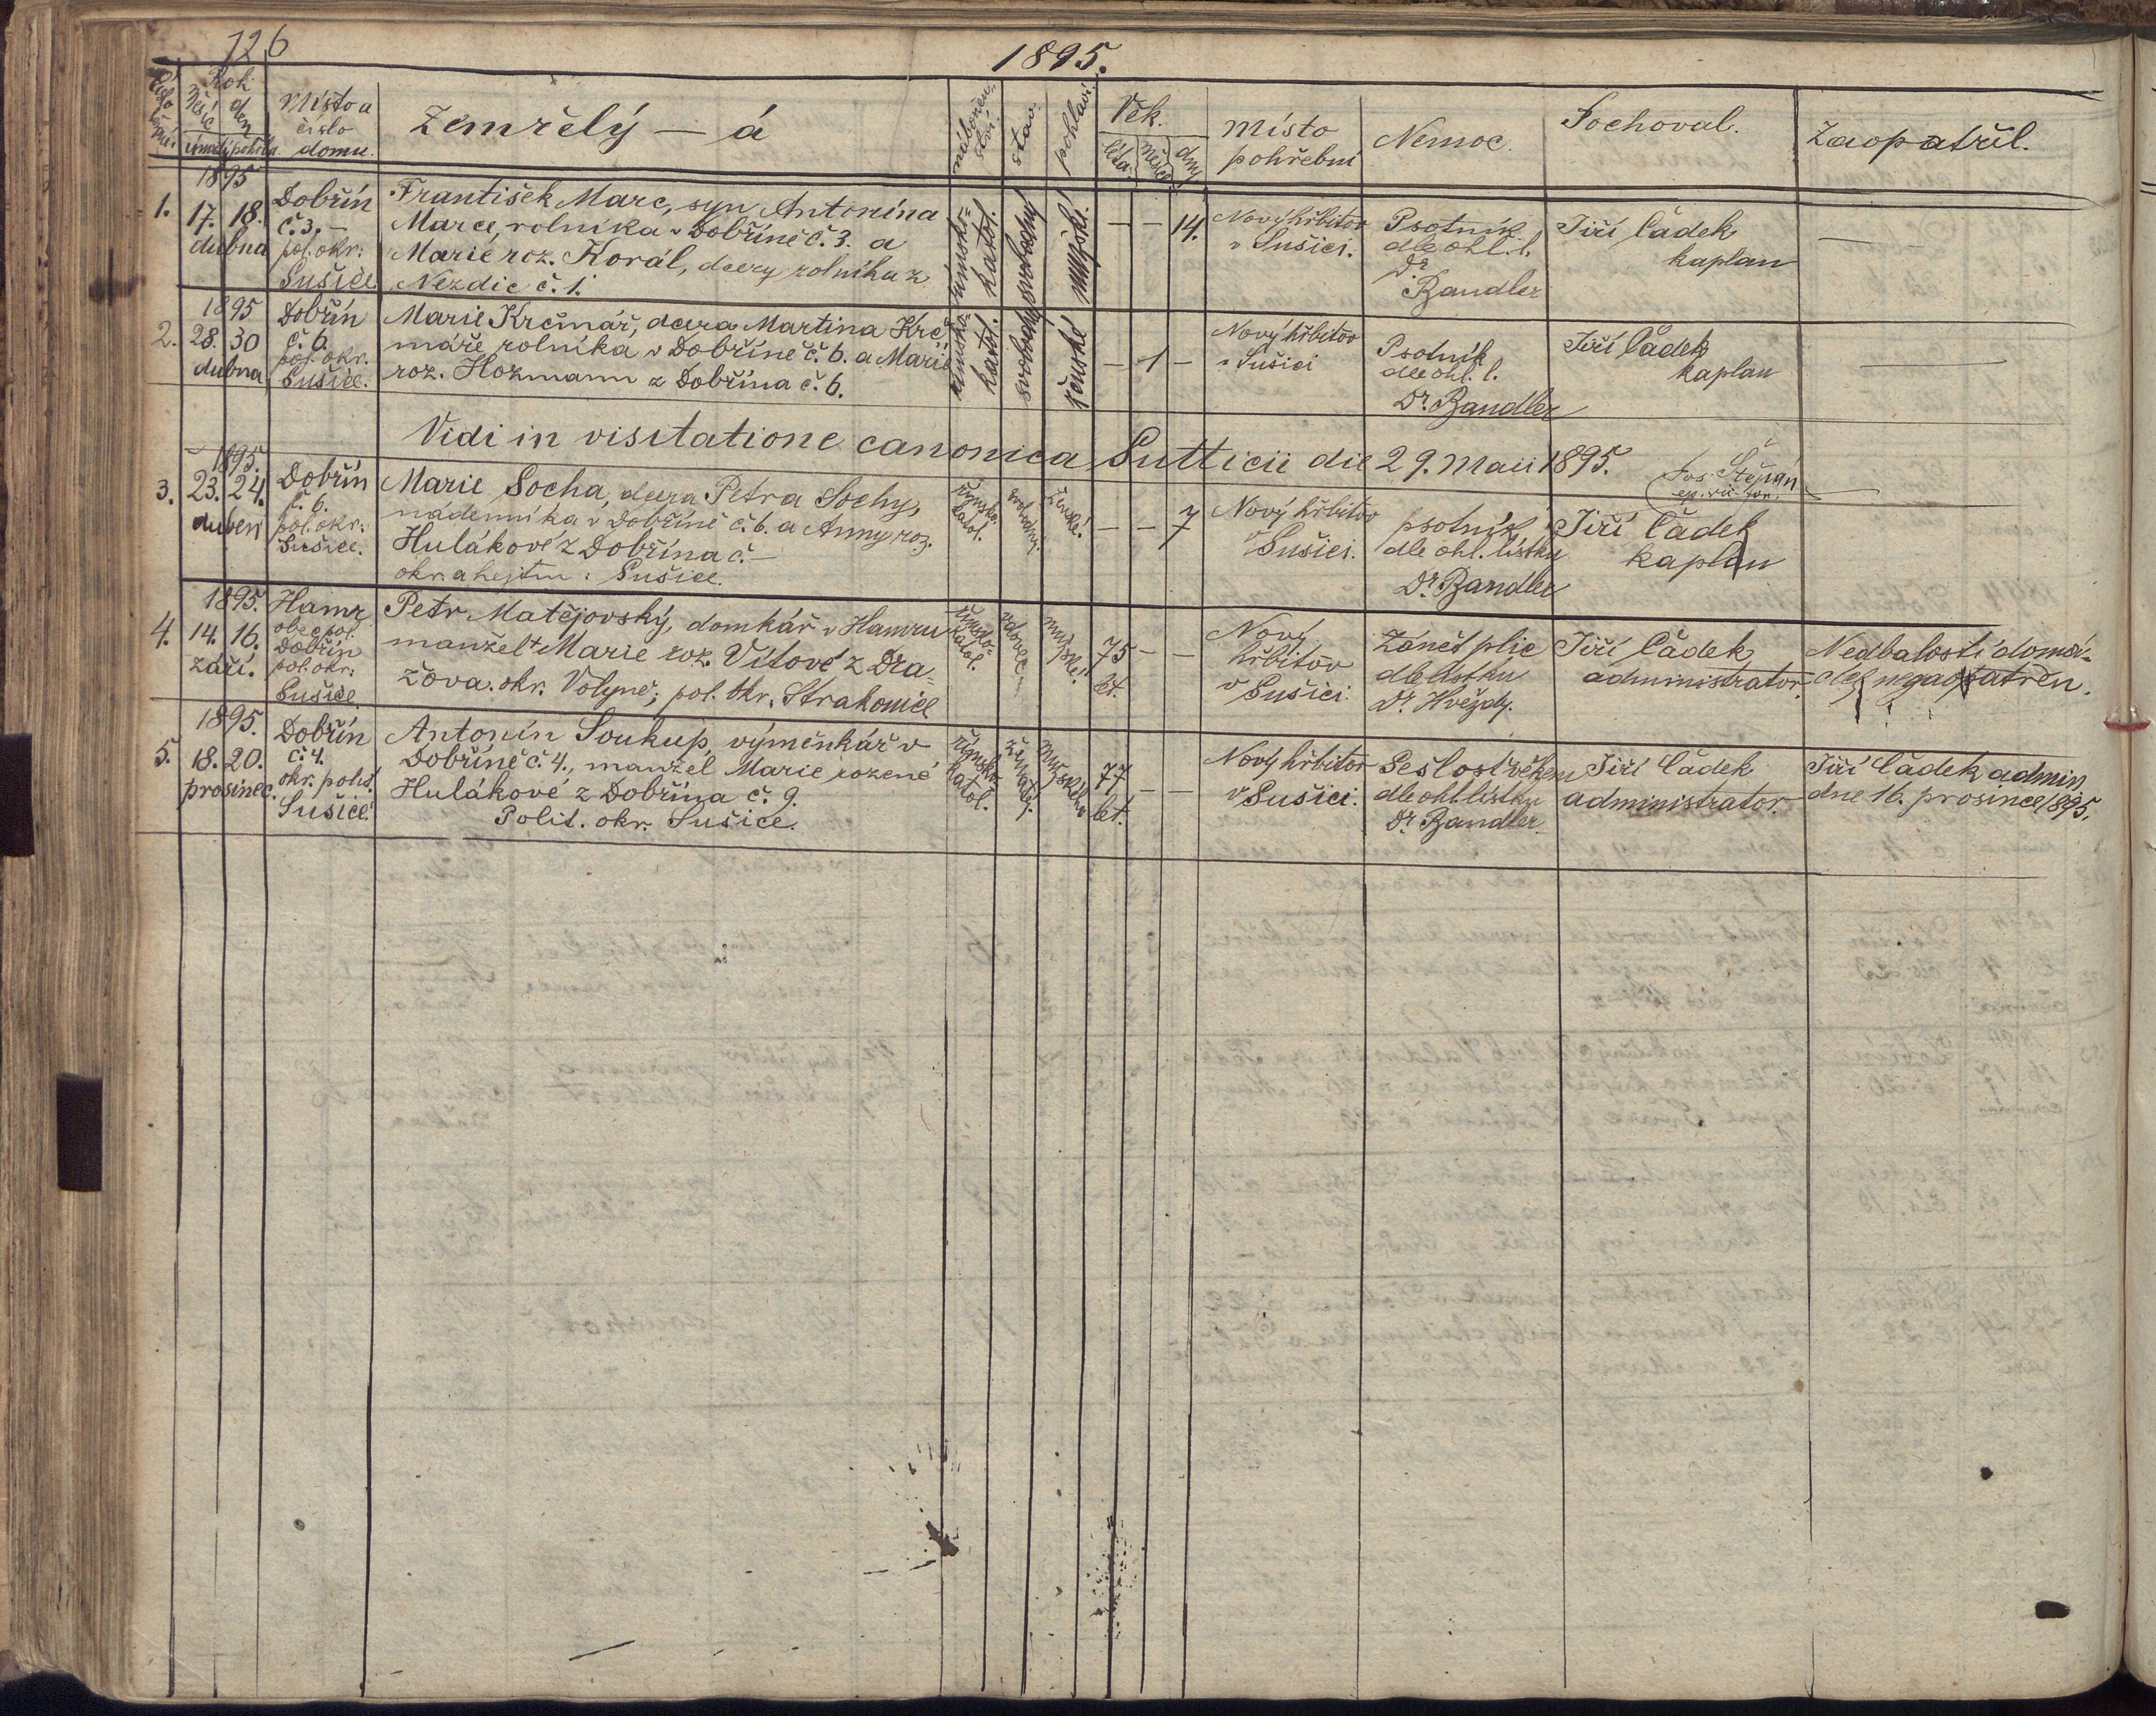 126
1895.
Číslo
Rok
Měsíc den
úmrtí pohřbu.
Místo a
číslo
domu.
Zemřelý – á
stav.
pohlaví.
Věk.
léta. měsíce dny
Místo
pohřební
Nemoc.
Pochoval.
Zaopatřil.
1.
1895
17. 18.
dubna
Dobřín
č. 3. –
pol. okr:
Sušice.
František Marc, syn Antonína
Marce, rolníka v Dobříně č. 3. a
Marie roz. Korál, dcery rolníka z
Nezdic č. 1.
římsko-
katol.
svobodný
mužské.
— — 14.
Nový hřbitov
v Sušici.
Psotník
dle ohl. l.
Dr.
Bandler
Jiří Čádek
kaplan
—
2.
1895
28. 30
dubna
Dobřín
č. 6.
pol. okr.
Sušice.
Marie Krčmář, dcera Martina Krč„
máře rolníka v Dobříně č. 6. a Marie
roz. Hozmann z Dobřína č. 6.
římsko-
katol.
ženské
— 1 —
Nový hřbitov
v Sušici
Psotník
dle ohl. l.
Dr. Bandler
Jiří Čádek
kaplan
—
Vidi in visitatione canonica Sutticii die 29. Maii 1895. Jos. Štěpán
3.
1895.
23. 24.
duben
Dobřín
č. 6.
pol. okr.:
Sušice.
Marie Socha, dcera Petra Sochy,
nádenníka v Dobříně č. 6. a Anny roz.
Hulákové z Dobřína č. —
okr. a hejtm: Sušice.
římsko.
katol.
ženské.
— — 7
Nový hřbitov
v Sušici.
psotník
dle ohl. lístku
Dr. Bandler
Jiří Čádek
kaplan
—
4.
1895.
14. 16.
září.
Hamr
obec pol.
Dobřín
pol. okr.
Sušice.
Petr Matějovský, domkář v Hamru
manžel Marie roz. Vítové z Dra-
žova. okr. Volyně; pol. okr. Strakonice
římsko-
katol.
vdovec
mužské.
75
let. — —
Nový
hřbitov
v Sušici.
Zánět plic
dle lístku
Dr. Hvězdy.
Jiří Čádek
administrator.
Nedbalostí domá-
cích nezaopatřen.
5.
1895.
18. 20.
prosinec.
Dobřín
č. 4.
okr. polit.
Sušice.
Antonín Soukup, výměnkář v
Dobříně č. 4., manžel Marie rozené
Hulákové z Dobřína č. 9.
Polit. okr. Sušice.
římsko.
katol.
ženatý.
mužského
77
let. — —
Nový hřbitov
v Sušici.
Sešlost věkem
dle ohl. lístku
Dr. Bandler.
Jiří Čádek
administrator.
Jiří Čádek admin.
dne 16. prosince 1895.